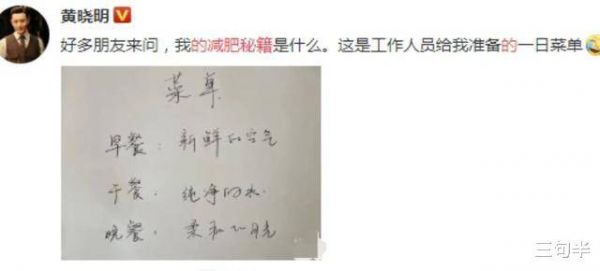 黄晓明
好多朋友来问，我的减肥秘籍是什么。这是工作人员给我准备的一日菜单
菜单
早餐：新鲜的空气
午餐：纯净的水.
晚餐：柔和的月亮
三句半